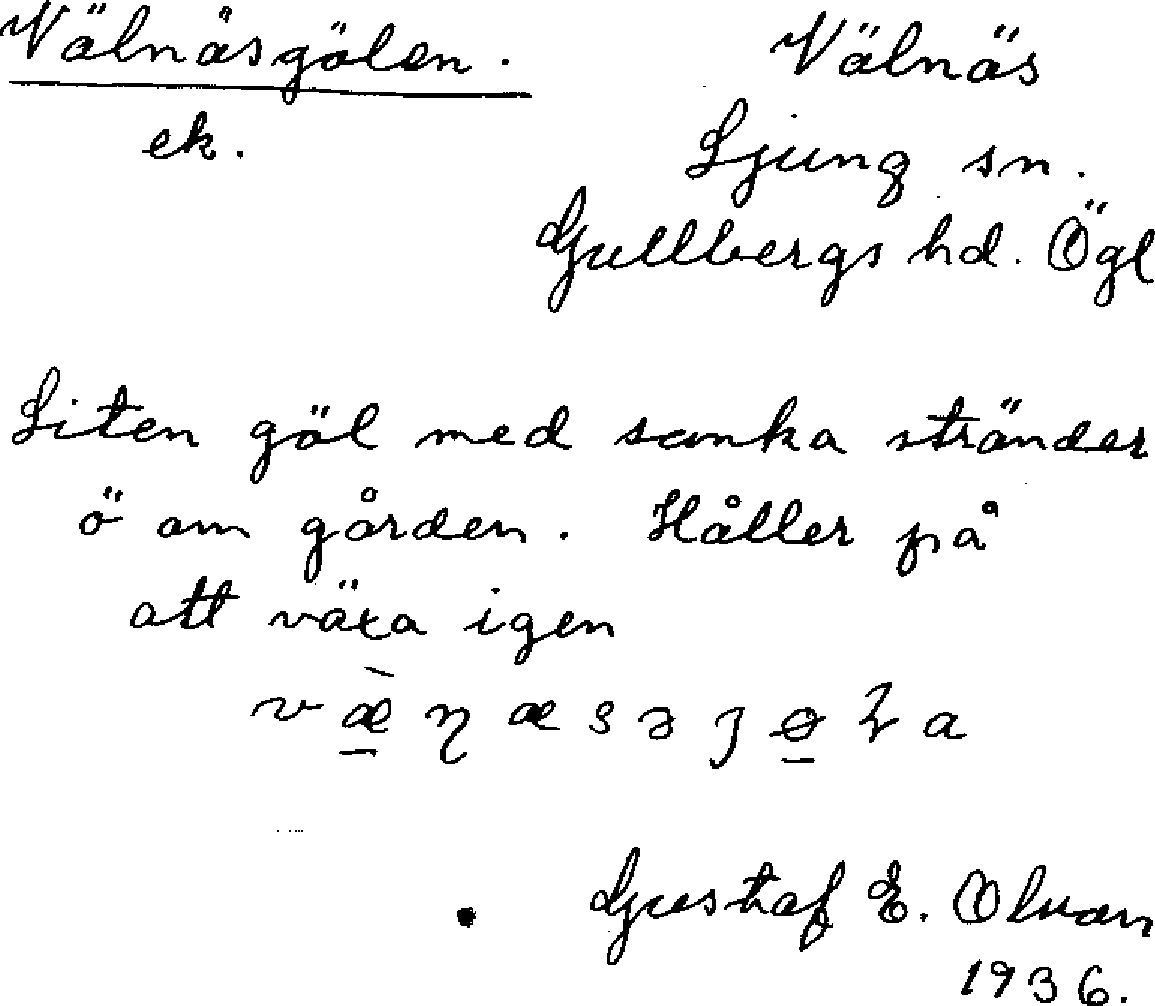 Välnäsgölen.
ek.
Välnäs
Ljung sn.
Gullbergs hd. Ögl
Liten göl med sanka stränder
ö om gården. Håller på
att växa igen
Gustaf E.
1936.